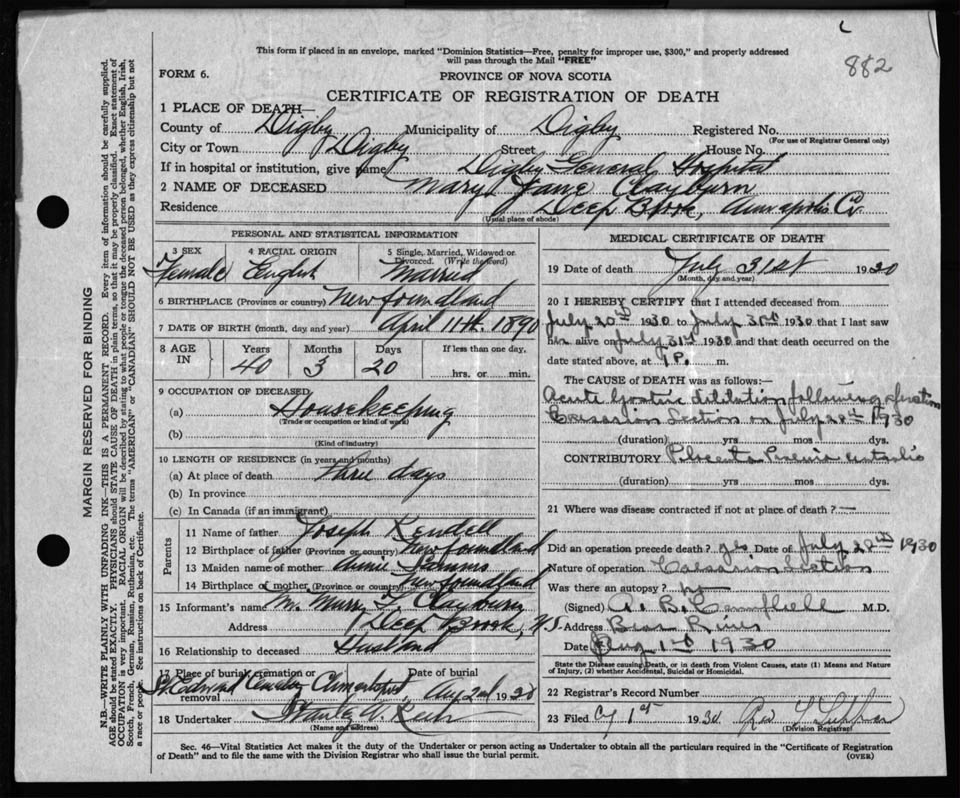 882
This form if placed in an envelope, marked "Dominion Statistics—Free, penalty for improper use, $300," and properly addressed
will pass through the Mail "FREE"
FORM 6.
PROVINCE OF NOVA SCOTIA
CERTIFICATE OF REGISTRATION OF DEATH
1 PLACE OF DEATH—
County of Digby Municipality of Digby Registered No.
(For use of Registrar General only)
City or Town Digby Street House No.
If in hospital or institution, give name Digby General Hospital
2 NAME OF DECEASED Mary Jane Clayburn
Residence Deep Brook, Annapolis Co.
(Usual place of abode)
PERSONAL AND STATISTICAL INFORMATION
3 SEX 4 RACIAL ORIGIN 5 Single, Married, Widowed or
Divorced. (Write the word)
Female English Married
6 BIRTHPLACE (Province or country) Newfoundland
7 DATE OF BIRTH (month, day and year) April 11th. 1890
8 AGE IN Years Months Days If less than one day,
40 3 20 hrs. or min.
9 OCCUPATION OF DECEASED
(a) Housekeeping
(Trade or occupation or kind of work)
(b)
(Kind of industry)
10 LENGTH OF RESIDENCE (in years and months)
(a) At place of death three days
(b) In province
(c) In Canada (if an immigrant)
Parents
11 Name of father Joseph Kendell
12 Birthplace of father (Province or country) Newfoundland
13 Maiden name of mother Annie
14 Birthplace of mother (Province or country) Newfoundland
15 Informant's name Clayburn
Address Deep Brook, N.S.
16 Relationship to deceased Husband
17 Place of burial, cremation or removal Date of burial
Clementsport, Aug 2nd 1930
18 Undertaker
(Name and address)
MEDICAL CERTIFICATE OF DEATH
19 Date of death July 31st 1930
(Month, day and year)
20 I HEREBY CERTIFY that I attended deceased from
July 20th 1930 to July 31st 1930 that I last saw
her alive on July 31st 1930 and that death occurred on the
date stated above, at 9 P. m.
The CAUSE OF DEATH was as follows:—
Acute Gastric dilitation following operation
Caesarian Section on July 28th 1930
(duration) yrs mos dys.
CONTRIBUTORY Placenta
(duration) yrs mos dys.
21 Where was disease contracted if not at place of death? —
Did an operation precede death? yes Date of July 28th 1930
Nature of operation Caesarian Section
Was there an autopsy? no
(Signed) A. B. Campbell M.D.
Address Bear River
Date Aug 1st 1930
State the Disease causing Death, or in death from Violent Causes, state (1) Means and Nature
of Injury, (2) whether Accidental, Suicidal or Homicidal.
22 Registrar's Record Number
23 Filed 1st 1930
(Division Registrar)
Sec. 46—Vital Statistics Act makes it the duty of the Undertaker or person acting as Undertaker to obtain all the particulars required in the "Certificate of Registration
of Death" and to file the same with the Division Registrar who shall issue the burial permit.
(OVER)
MARGIN RESERVED FOR BINDING
N.B.—WRITE PLAINLY WITH UNFADING INK—THIS IS A PERMANENT RECORD. Every item of information should be carefully supplied.
AGE should be stated EXACTLY. PHYSICIANS should STATE CAUSE OF DEATH in plain terms, so that it may be properly classified. Exact statement of
OCCUPATION is very important. RACIAL ORIGIN will be described by stating to what people or tongue the deceased person belonged, whether English, Irish,
Scotch, French, German, Russian, Ruthenian, etc. The terms "AMERICAN" or "CANADIAN" SHOULD NOT BE USED as they express citizenship but not
a race or people. See instructions on back of Certificate.